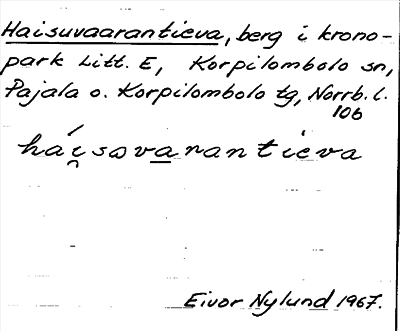 Haisuvaarantieva, berg i krono-
park Litt. E, Korpilombolo sn,
Pajala o. Korpilombolo tg, Norrb. l.
106
hái̯sɷvarantieva
Eivor Nylund 1967.